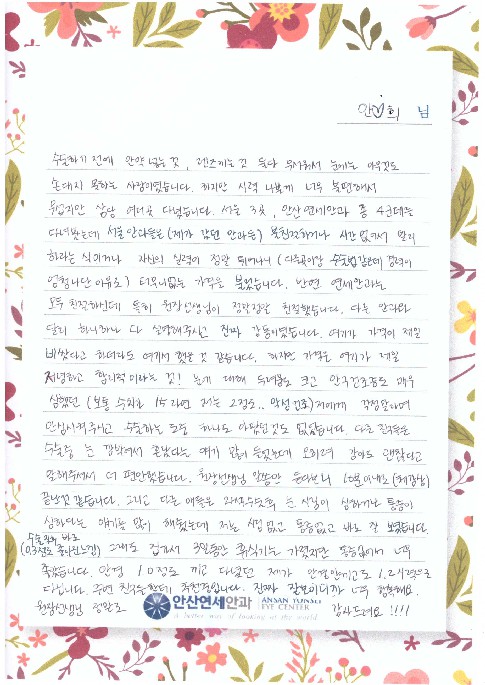 안♡희 님
수술하기 전에 안약 넣는 것, 렌즈끼는 것 둘다 무서워서 눈에는 아무것도
손대지 못하는 사람이었습니다. 하지만 시력 나쁜게 너무 불편해서
무섭지만 상담 여러곳 다녔습니다. 서울 3곳, 안산연세안과 총 4군데를
다녀봤는데 서울 안과들은 (제가 갔던 안과들) 불친절하거나 시간 없어서 빨리
하라는 식이거나 자신의 실력이 정말 뛰어나니
엄청나단 이유로) 터무니없는 가격을 불렀습니다. 반면 연세안과는
모두 친절하신데 특히 원장선생님이 정말정말 친절했습니다. 다른 안과와
달리 하나하나 다 설명해주시고 진짜 감동이었습니다. 여기가 가격이 제일
비쌌다고 하더라도 여기서 했을 것 같습니다. 하지만 가격은 여기가 제일
저렴하고 합리적이라는 것! 눈에 대해 두려움도 크고 안구건조증도 매우
심했던 (보통 수치가 15라면 저는 2정도.. 악성건조) 저에게 걱정말라며
안심시켜주시고 수술하는 도중 하나도 아팠던것도 없었습니다. 다른 친구들은
수술중 눈 깜박여서 혼났다는 얘기 많이 들었는데 오히려 감아도 괜찮다고
말해주셔서 더 편안했습니다. 원장선생님 말씀만 듣다보니 10분이내로 (체감상)
끝난것 같습니다. 그리고 다른 애들은 라식수술후 눈 시림이 심하거나 통증이
심하다는 얘기를 많이 해줬는데 저는 시림 없고 통증없고 바로 잘 보였습니다.
수술직후 바로
(0.3정도 좋아진느낌) 그래도 겁나서 3일동안 휴식기는 가졌지만 통증없어서 너무
좋았습니다. 안경 1.0정도 끼고 다녔던 제가 안경안끼고도 1.2시력으로
다닙니다. 주변 친구들한테 추천중입니다. 진짜 잘보이니까 너무 행복해요.
원장선생님 정말로 감사드려요 !!!!
안산연세안과 ANSAN YONSEI EYE CENTER
a better way of looking at the world